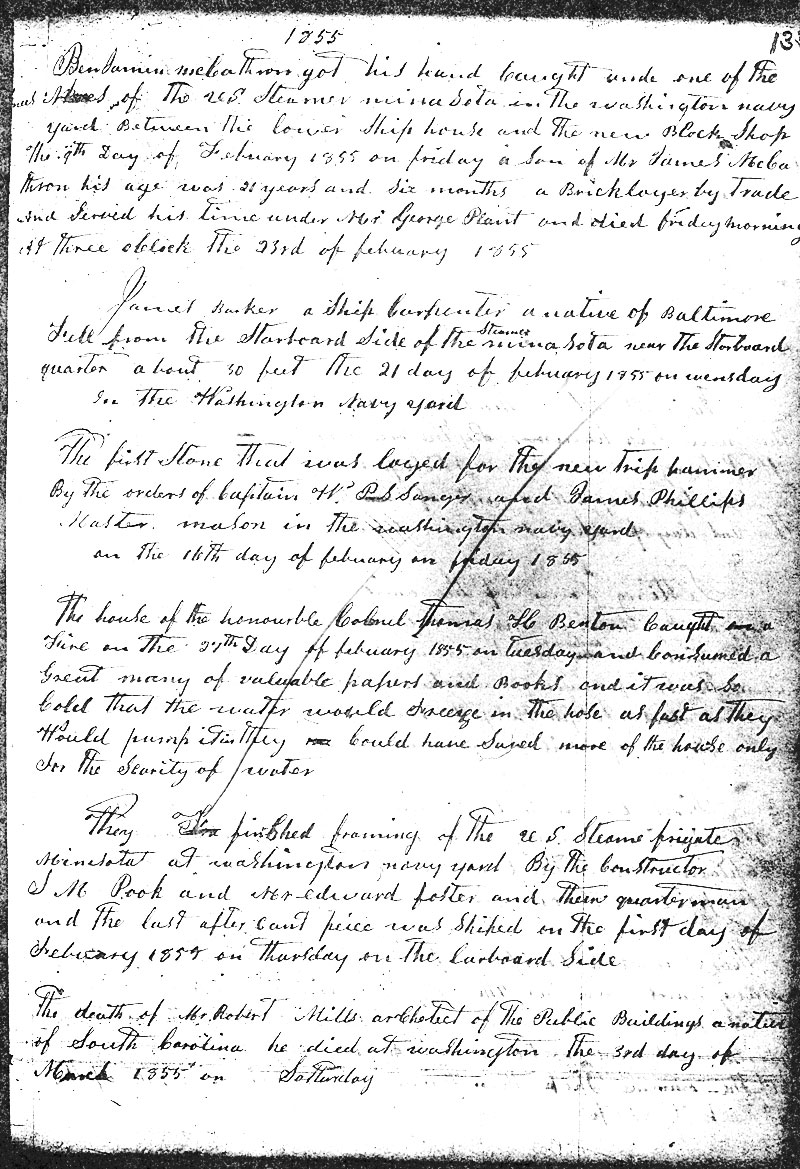 1855
Benjamin mcCathron got his hand Caught unde one of the
of the U.S. Steamer minasota in the washington navy
yard Between the lower Ship house and the new Block Shop
the 9th Day of February 1855 on friday a Son of Mr James McCa
thron his age was 21 years and Six months a Bricklayer by Trade
and Served his time under Mr George Plant and died friday morning
at three oClock the 23rd of february 1855
James Barker a Ship Carpenter a native of Baltimore
Fell from the Starboard Side of the Steamer minasota near the Storboard
quarter about 30 feet the 21 day of february 1855 on wensday
In the Washington Navy yard
The first Stone that was layed for the new trip hammer
By the orders of Captain Sanger and James Phillips
Master mason in the washington navy yard
on the 16th day of february on friday 1855
The house of the honourble Colonel Thomas H Benton Caught a
Fire on the 27th Day of february 1855 on tuesday and Consumed a
Great many of valuable papers and Books and it was So
Cold that the water would Freeze in the hose as fast as they
Would pump it they Could have Saved more of the house only
for the Scarity of water
They finished framing of the U S Steame frigate
Minisota at washington navy yard By the Constructor
S M Pook and Mr edward foster and them quarterman
and the last after Cant peice was Shiped on the first day of
February 1855 on thursday on the Larboard Side
The death of Mr Robert Mills archetect of the Public Buildings a native
of South Carolina he died at washington the 3rd day of
March 1855 on Satturday